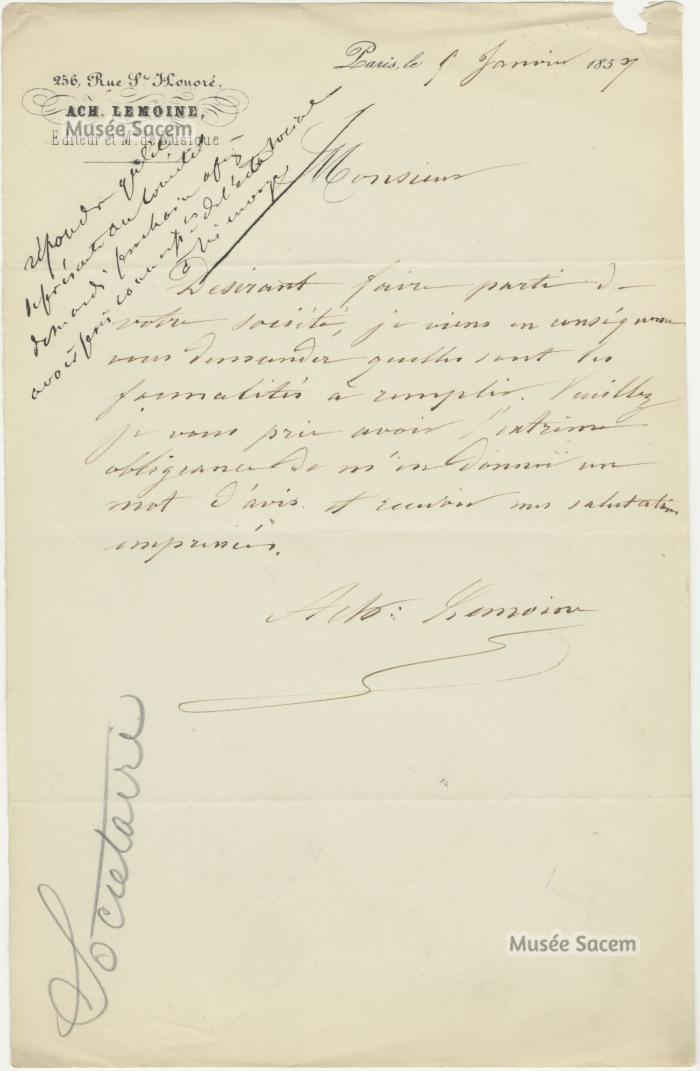 Paris, le 5 Janvier 1857
256, Rue St Honoré,
ACH. LEMOINE,
Musée Sacem
Editeur et Md de Musique
répondre qu'il
se présente au Comité
de mardi prochain afin
avoir pris connces de l'acte social
Monsieur
Desirant faire parti de
votre société, je viens en conséquence
vous demander quelles sont les
formalités à remplir. Veuillez
je vous prie avoir l'extrême
obligeance de m'en donner un
mot d'avis. et recevoir mes salutations
empressées.
Ach: Lemoine
Sociétaire
Musée Sacem